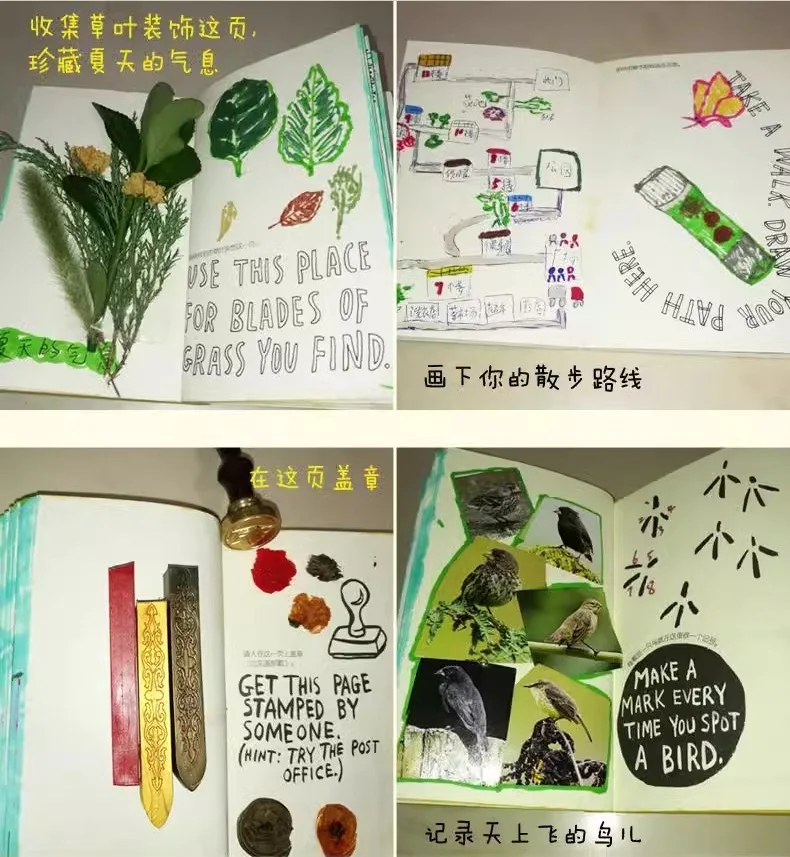 收集草叶装饰这页,
珍藏夏天的气息
USE THIS PLACE
FOR BLADES OF
GRASS YOU FIND.
夏天的气息
TAKE A WALK. DRAW YOUR PATH HERE.
北门
公园
7楼
5楼
7楼
画下你的散步路线
在这页盖章
请人在这一页上盖章
GET THIS PAGE
STAMPED BY
SOMEONE.
(HINT: TRY THE POST
OFFICE.)
MAKE A
MARK EVERY
TIME YOU SPOT
A BIRD.
记录天上飞的鸟儿